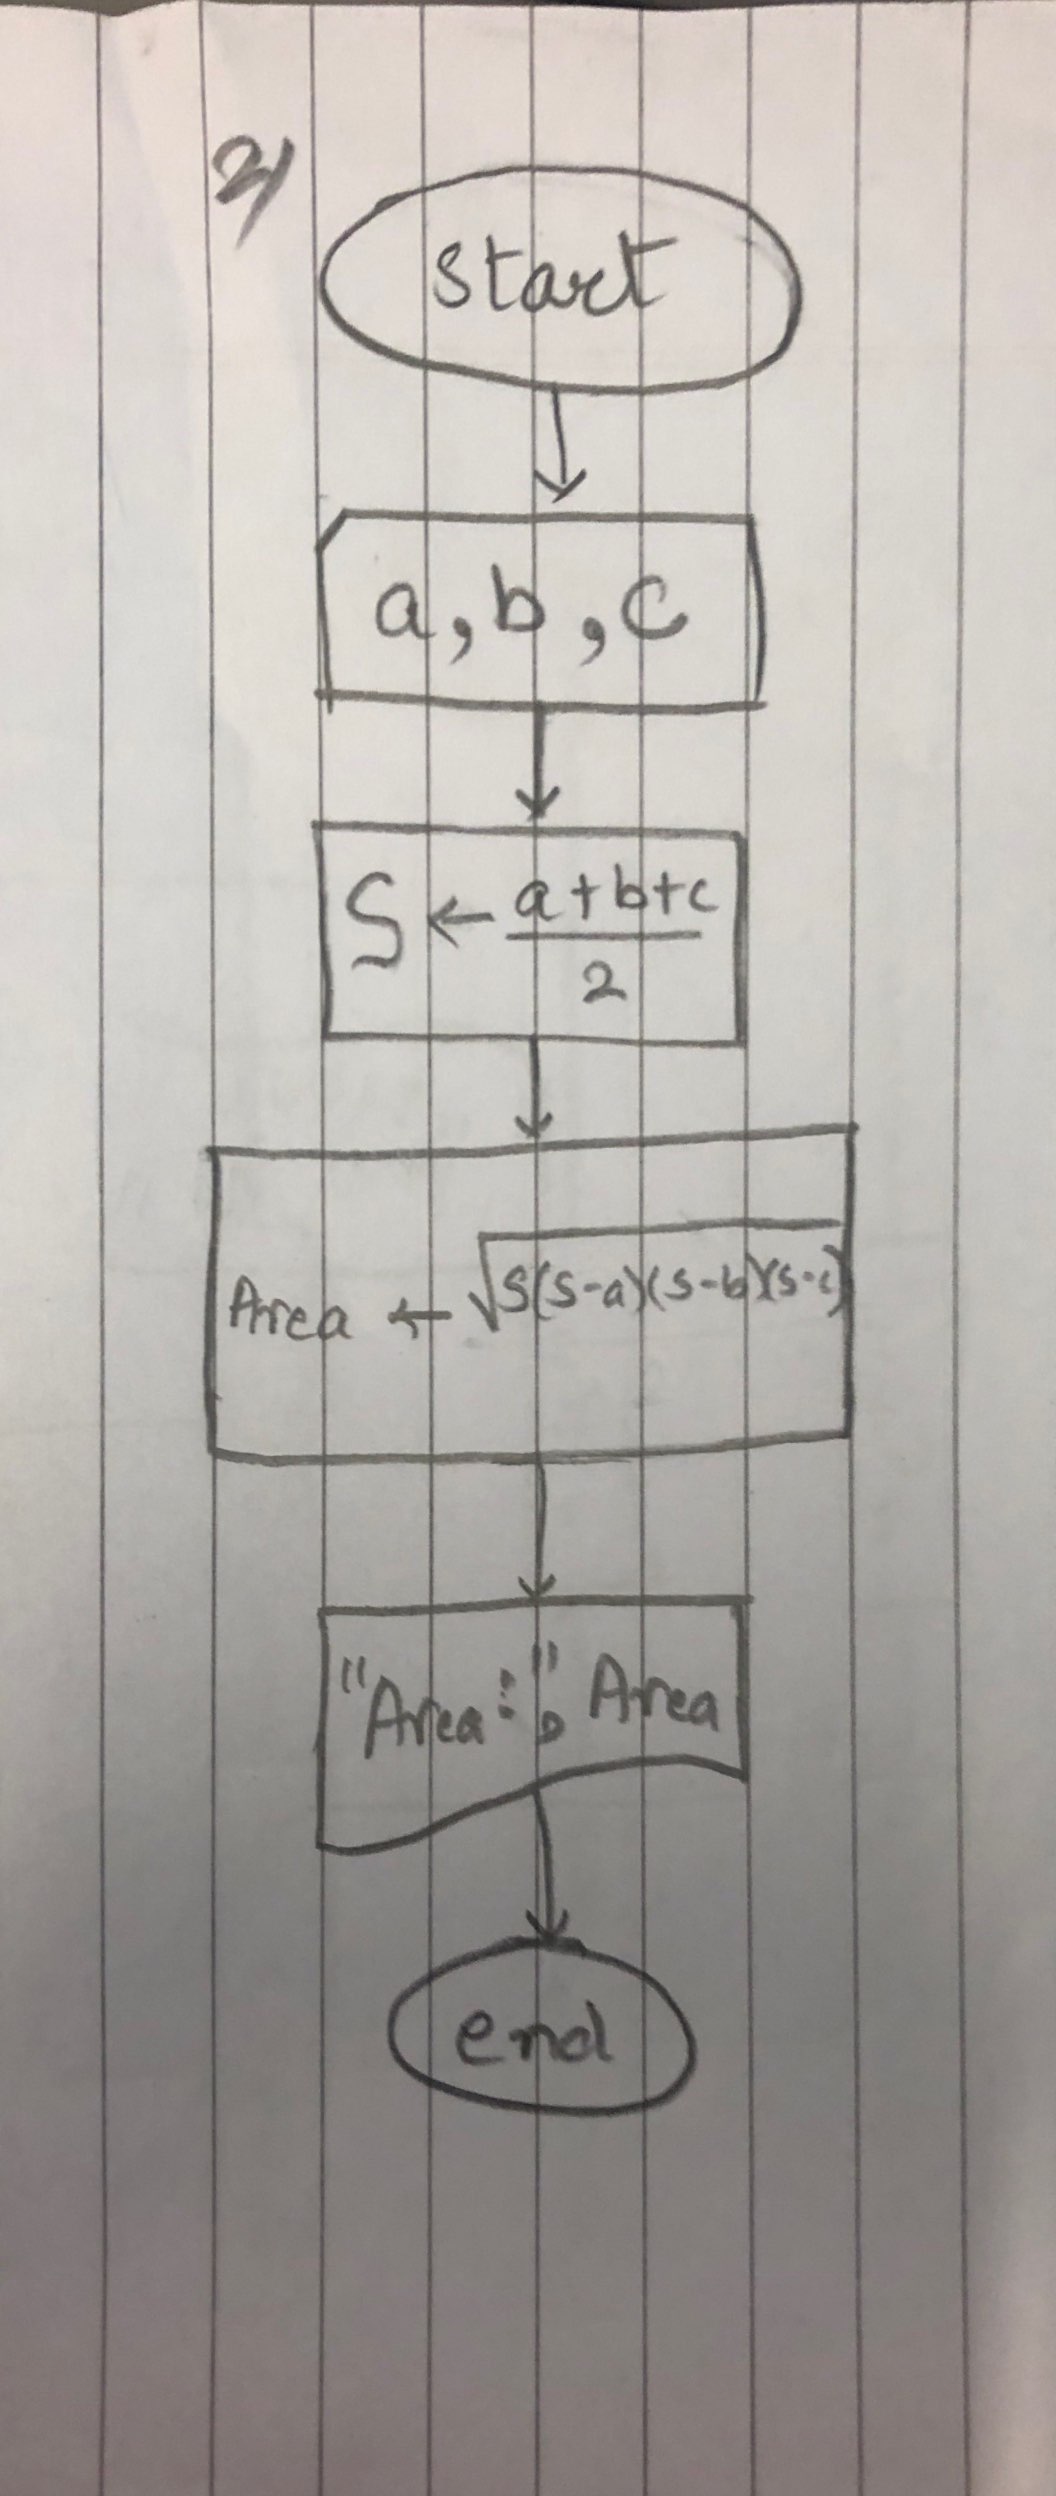 2)
start
a, b, c
S ← a+b+c
2
Area ← √S(S-a)(S-b)(S-c)
"Area:", Area
end